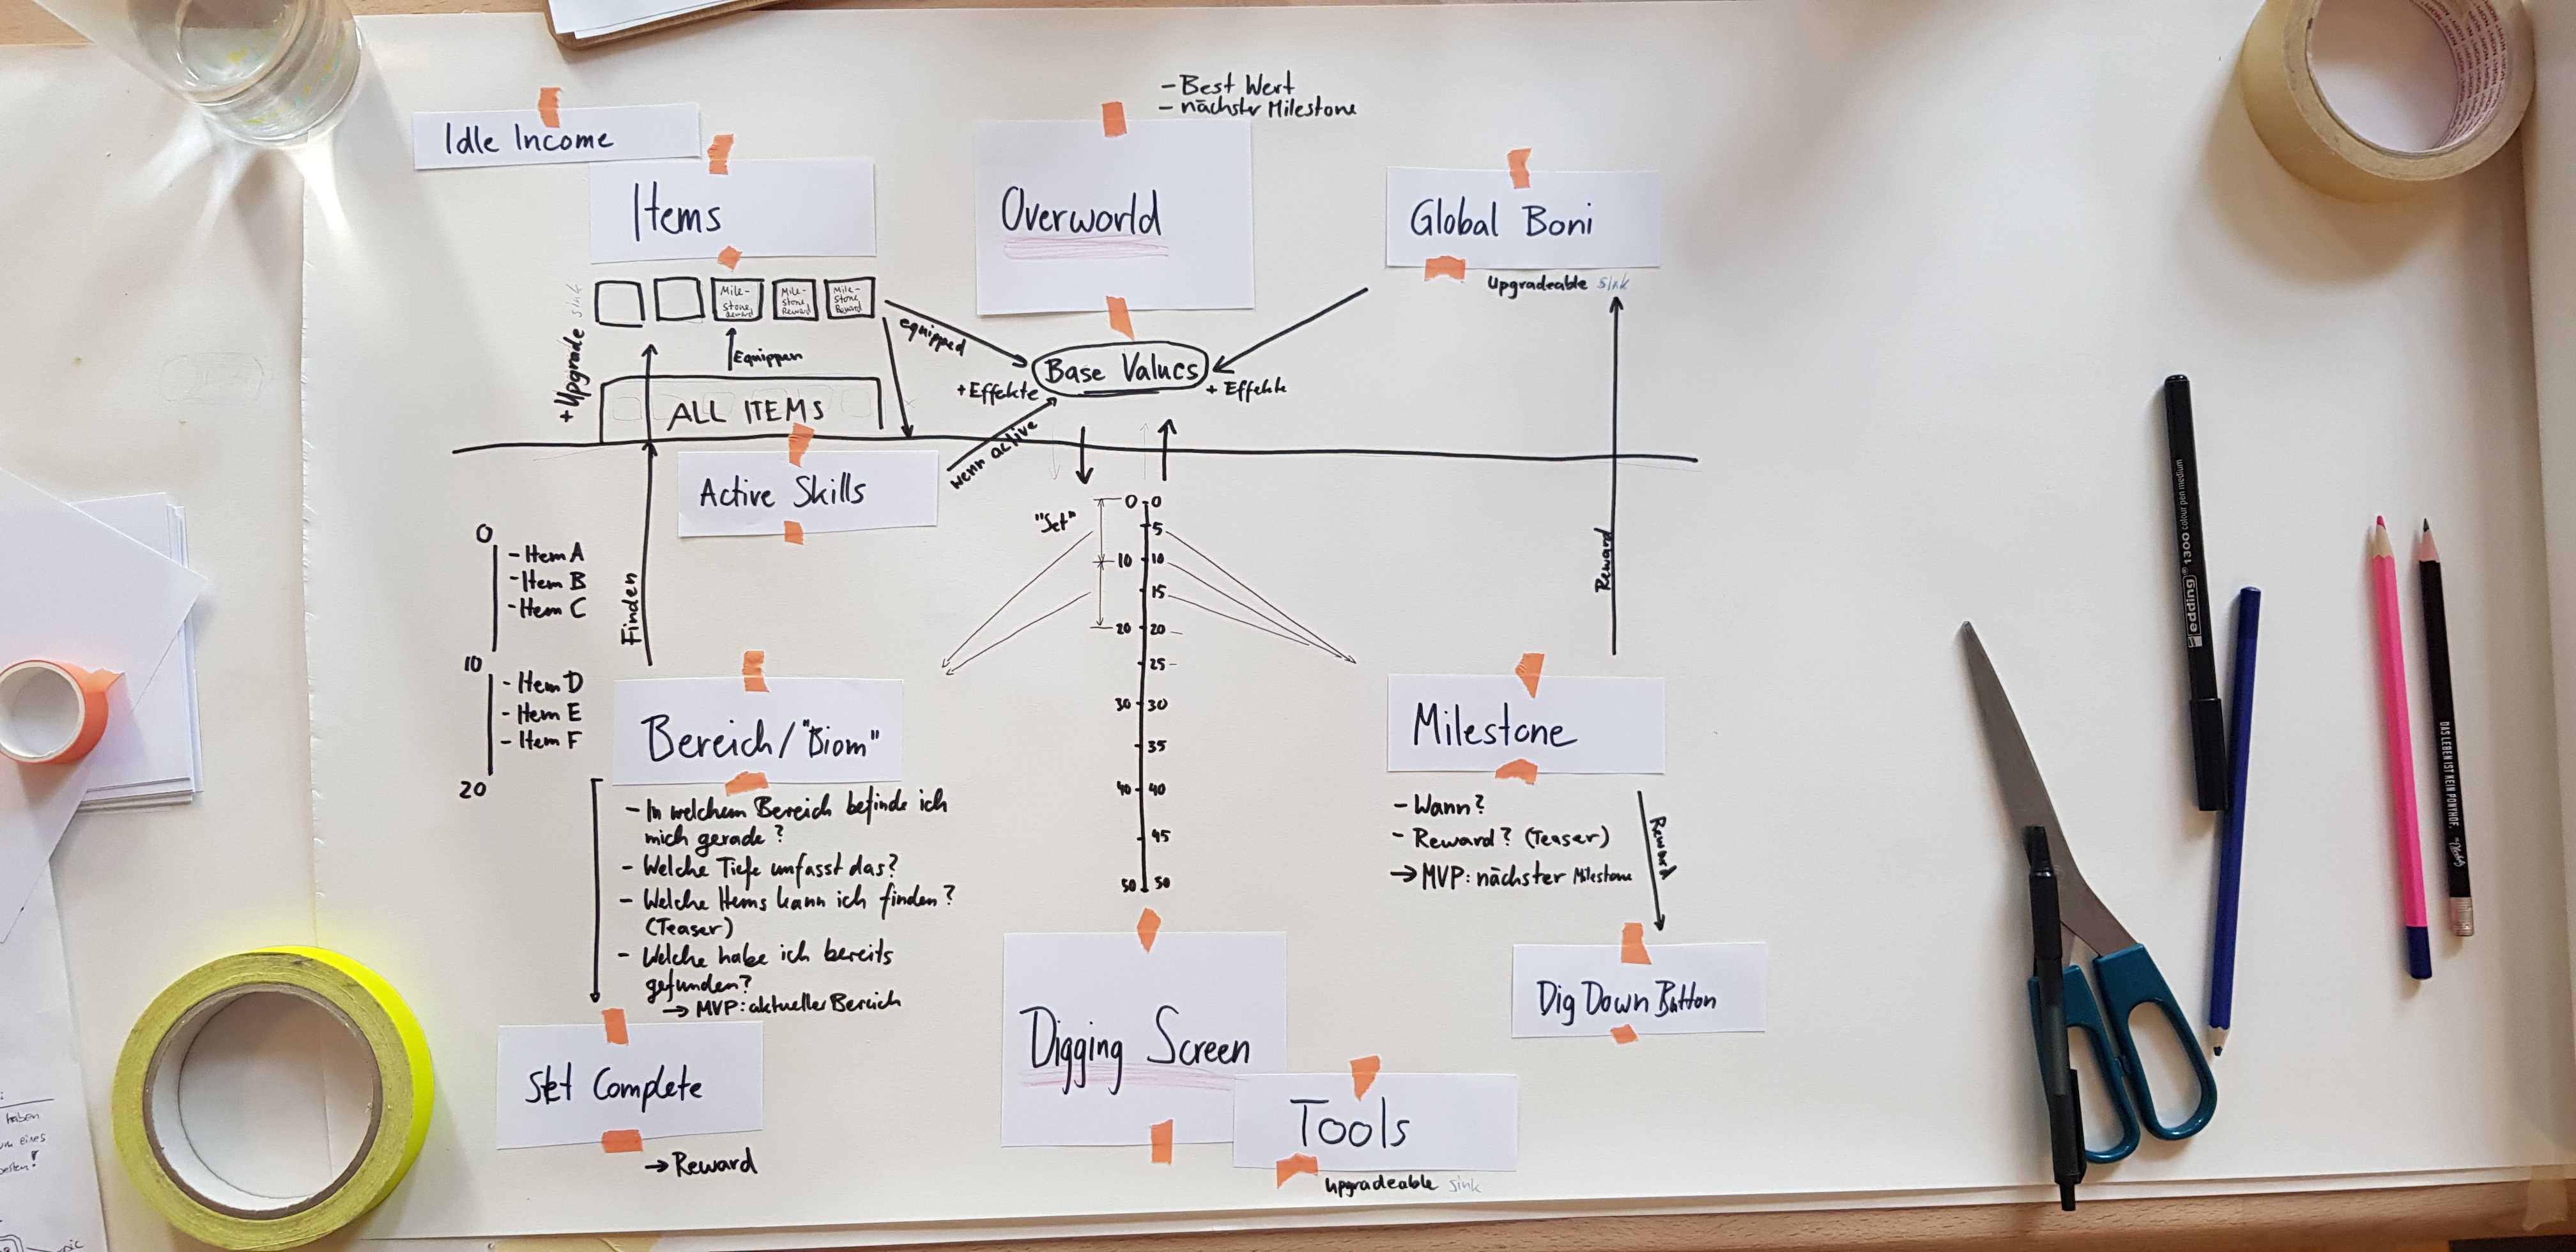 - Best Wert
- nächster Milestone
Idle Income
Items
Overworld
Global Boni
Upgradeable sink
+ Upgrade sink
Mile-
stone
Reward
Mile-
stone
Reward
Mile-
stone
Reward
equipped
Equippen
ALL ITEMS
Base Values
+ Effekte
+ Effekte
wenn active
Active Skills
Finden
Reward
0
- Item A
- Item B
- Item C
10
- Item D
- Item E
- Item F
20
"Set"
0 0
5
10 10
15
20 20
25
30 30
35
40 40
45
50 50
Bereich/"Biom"
- In welchem Bereich befinde ich
mich gerade?
- Welche Tiefe umfasst das?
- Welche Items kann ich finden?
(Teaser)
- Welche habe ich bereits
gefunden?
→ MVP: aktueller Bereich
Milestone
- Wann?
- Reward? (Teaser)
→ MVP: nächster Milestone
Reward
Dig Down Button
Set Complete
→ Reward
Digging Screen
Tools
Upgradeable sink
edding 1300 colour pen medium
DAS LEBEN IST KEIN PONYHOF.
haben
eines